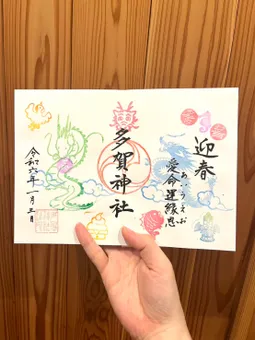 迎春
愛命運縁恵
あいうえお
多賀神社
令和六年一月三日